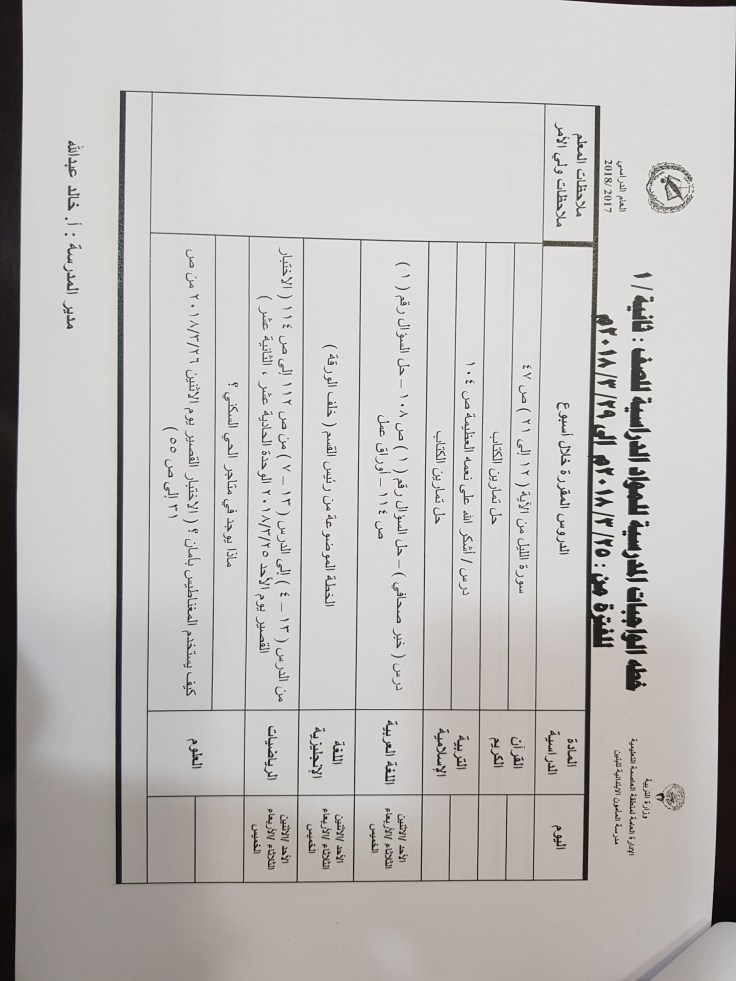 وزارة التربية
الإدارة العامة لمنطقة العاصمة التعليمية
مدرسة المأمون الابتدائية للبنين
خطه الواجبات المدرسية للمواد الدراسية للصف : ثانية / ١
للفترة من : ٢٥ /٣ /٢٠١٨م إلى ٢٩ /٣ /٢٠١٨م
العام الدراسي
2018/ 2017
اليوم
المادة الدراسية
الدروس المقررة خلال أسبوع
ملاحظات المعلم
ملاحظات ولي الأمر
القرآن الكريم
سورة الليل من الآية ( ١٢ إلى ٢١ ) ص ٤٧
حل تمارين الكتاب
التربية الإسلامية
درس / أشكر الله على نعمه العظيمة ص ١٠٤
حل تمارين الكتاب
الأحد /الاثنين
الثلاثاء /الأربعاء
الخميس
اللغة العربية
درس ( خبر صحافي ) – حل السؤال رقم ( ١ ) ص ١٠٨ – حل السؤال رقم ( ١ )
ص ١١٤ – أوراق عمل
الأحد /الاثنين
الثلاثاء /الأربعاء
الخميس
اللغة الإنجليزية
الخطة الموضوعة من رئيس القسم ( خلف الورقة )
الأحد /الاثنين
الثلاثاء /الأربعاء
الخميس
الرياضيات
من الدرس ( ١٣ – ٤ ) إلى الدرس ( ١٣ – ٧ ) من ص ١١٢ إلى ص ١١٤ ( الاختبار
القصير يوم الأحد ٢٠١٨/٣/٢٥ الوحدة الحادية عشر ، الثانية عشر )
العلوم
ماذا يوجد في متاجر الحي السكني ؟
كيف يستخدم المغناطيس بأمان ؟ ( الاختبار القصير يوم الاثنين ٢٠١٨/٣/٢٦ من ص
٣١ إلى ص ٥٥ )
مدير المدرسة : أ. خالد عبدالله